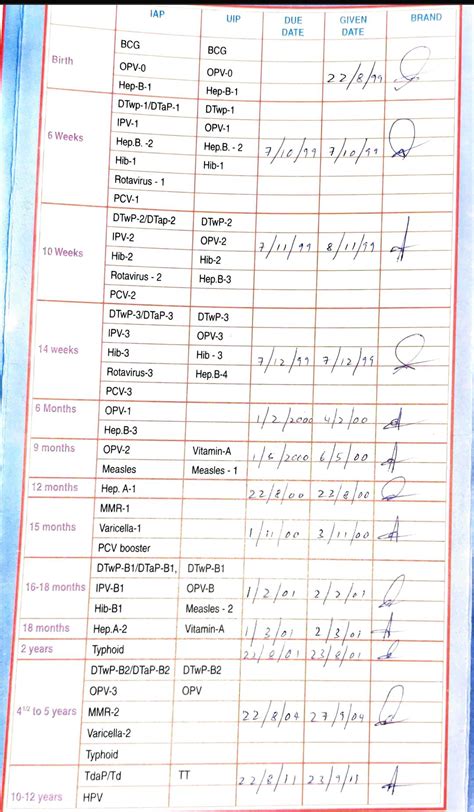 IAP UIP DUE DATE GIVEN DATE BRAND
Birth
BCG BCG
OPV-0 OPV-0 22/8/99
Hep-B-1 Hep-B-1
6 Weeks
DTwp-1/DTaP-1 DTwp-1
IPV-1 OPV-1
Hep.B. -2 Hep.B. - 2 7/10/99 7/10/99
Hib-1 Hib-1
Rotavirus - 1
PCV-1
10 Weeks
DTwP-2/DTap-2 DTwP-2
IPV-2 OPV-2 7/11/99 8/11/99
Hib-2 Hib-2
Rotavirus - 2 Hep.B-3
PCV-2
14 weeks
DTwP-3/DTaP-3 DTwP-3
IPV-3 OPV-3
Hib-3 Hib - 3 7/12/99 7/12/99
Rotavirus-3 Hep.B-4
PCV-3
6 Months
OPV-1 1/2/2000 4/2/00
Hep.B-3
9 months
OPV-2 Vitamin-A 6/5/00
Measles Measles - 1
12 months Hep. A-1 22/8/00 22/8/00
15 months
MMR-1
Varicella-1 1/11/00 3/11/00
PCV booster
16-18 months
DTwP-B1/DTaP-B1, DTwP-B1
IPV-B1 OPV-B 1/2/01 2/2/01
Hib-B1 Measles - 2
18 months Hep.A-2 Vitamin-A 1/3/01 2/3/01
2 years Typhoid 22/8/01 23/8/01
4 1/2 to 5 years
DTwP-B2/DTaP-B2 DTwP-B2
OPV-3 OPV
MMR-2 22/8/04 27/9/04
Varicella-2
Typhoid
10-12 years
TdaP/Td TT 22/8/11 23/9/11
HPV